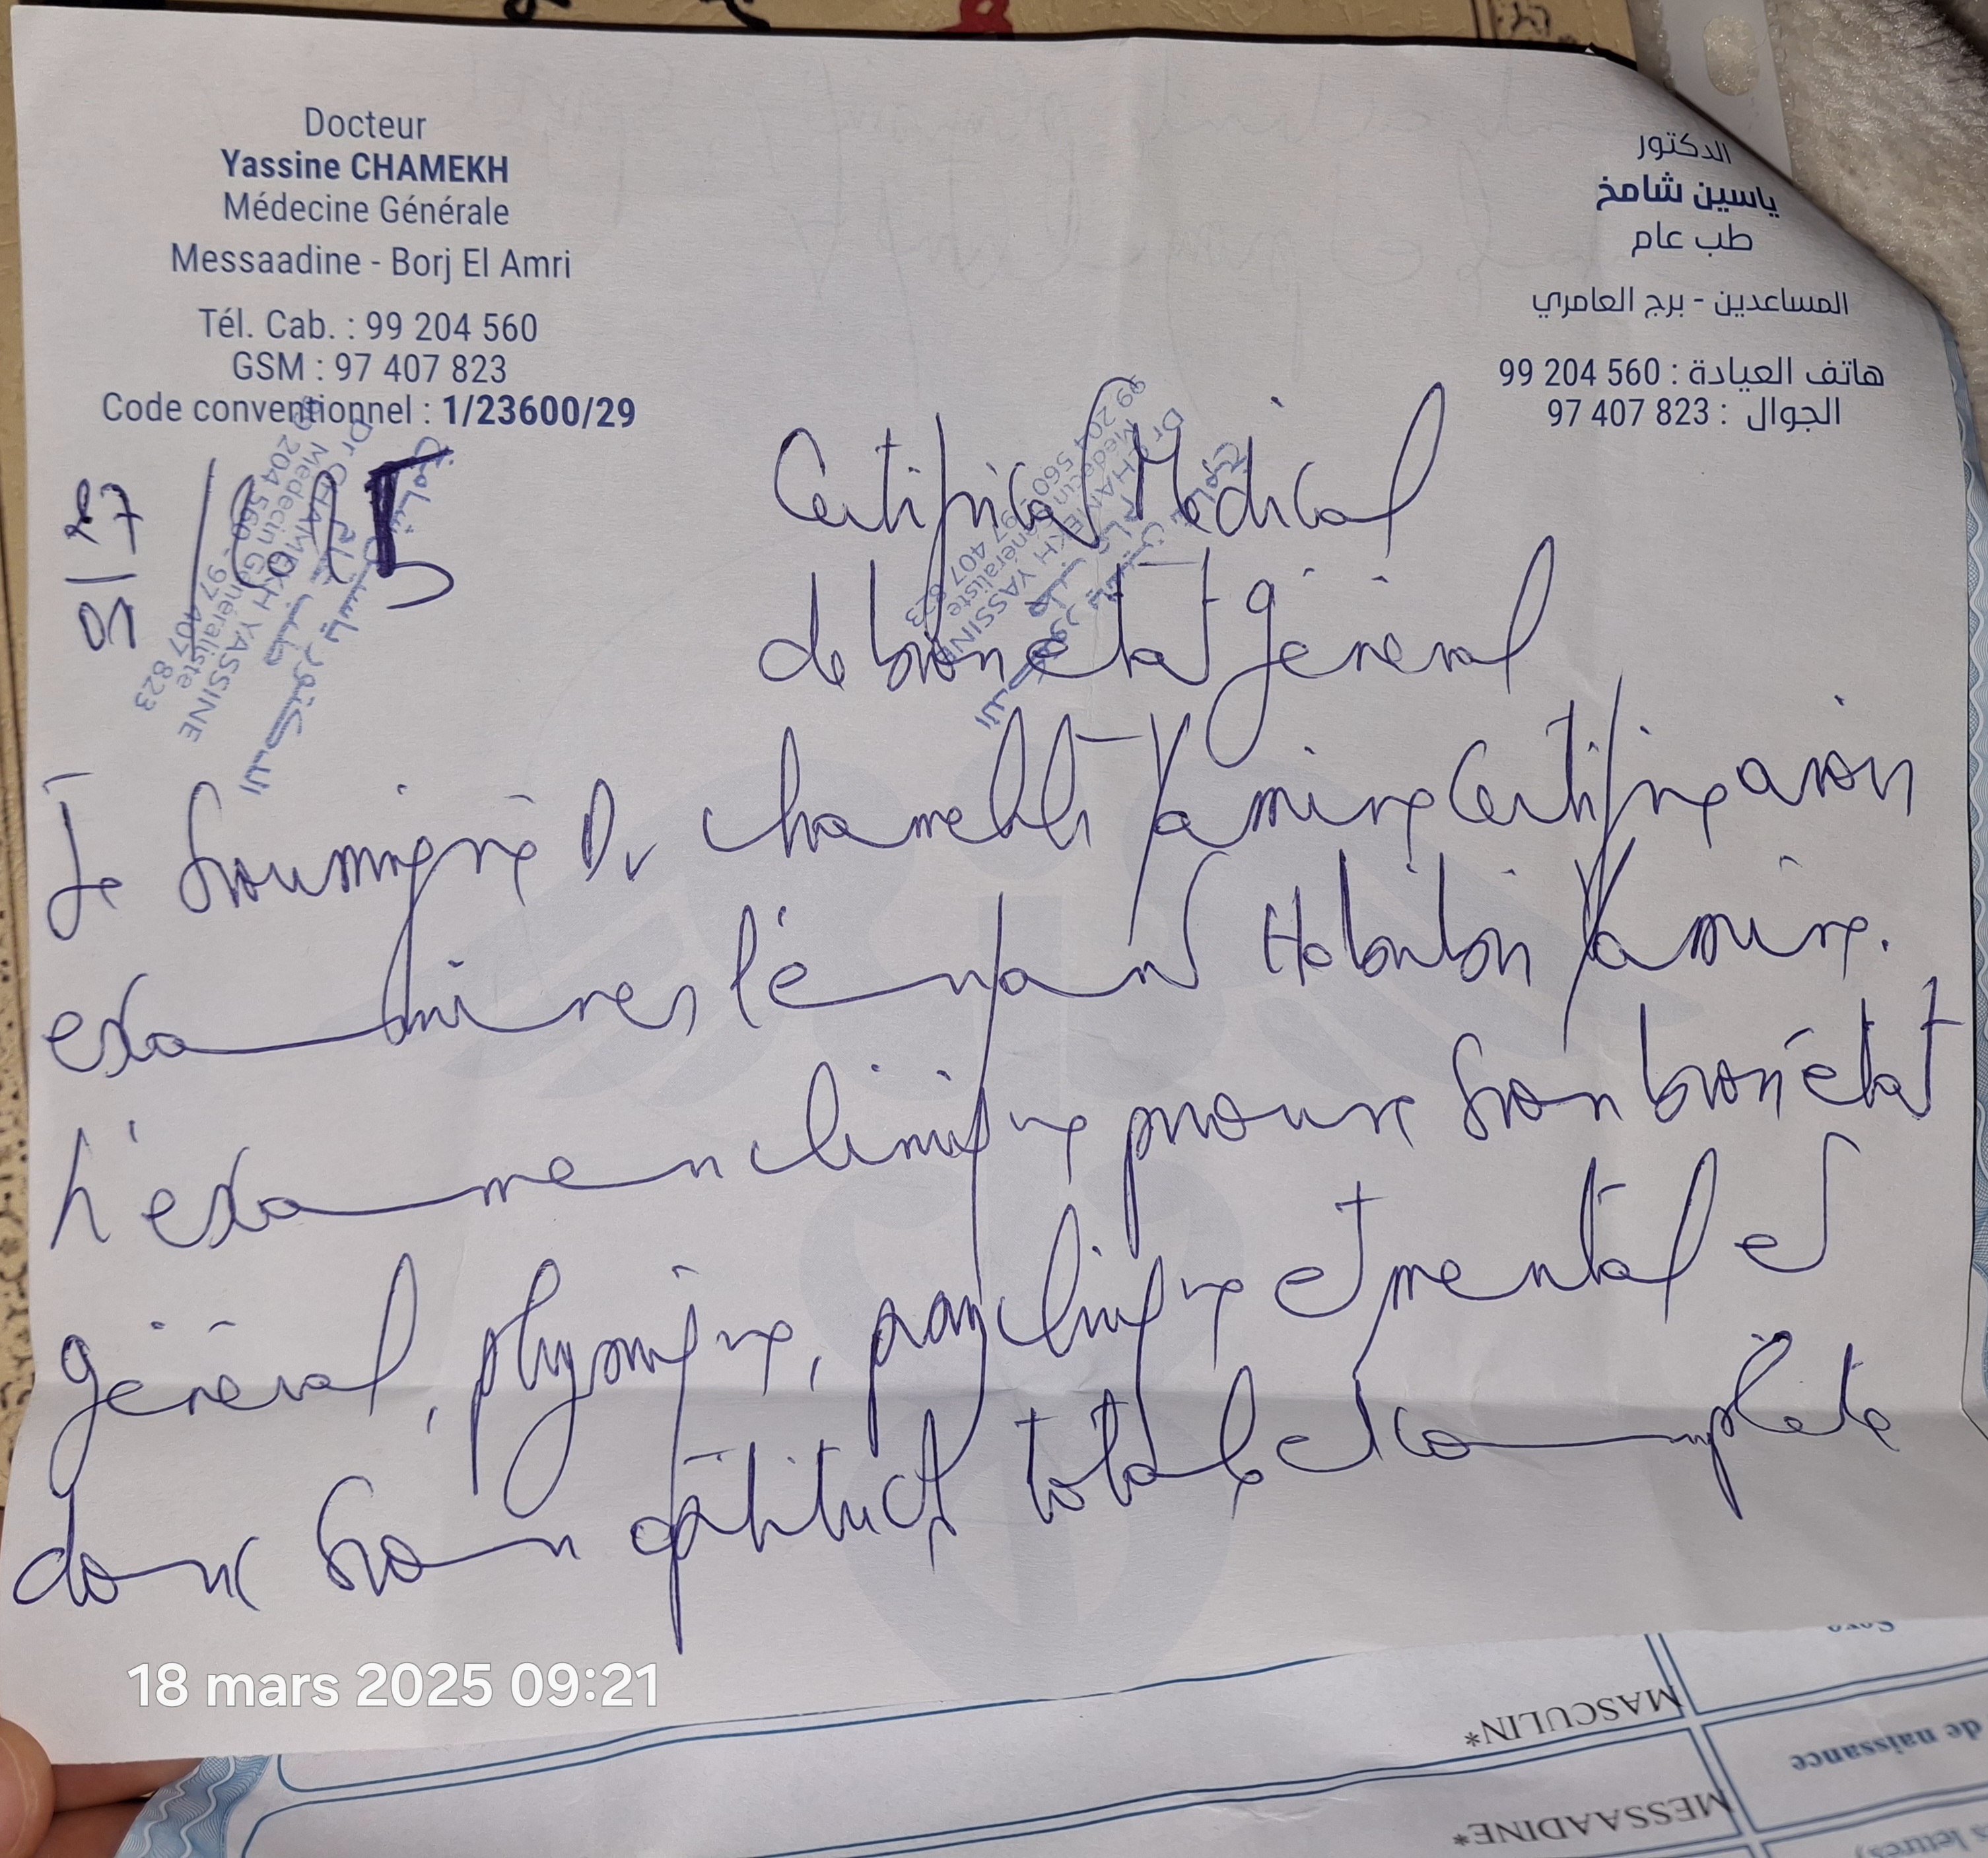 Docteur
Yassine CHAMEKH
Médecine Générale
Messaadine - Borj El Amri
Tél. Cab. : 99 204 560
GSM : 97 407 823
Code conventionnel : 1/23600/29
الدكتور
ياسين شامخ
طب عام
المساعدين - برج العامري
هاتف العيادة : 99 204 560
الجوال : 97 407 823
Dr CHAMEKH YASSINE
Médecin Généraliste
99 204 560 - 97 407 823
Dr CHAMEKH YASSINE
Médecin Généraliste
99 204 560 - 97 407 823
27
01
Certificat Médical
de bon état général
Je soussigné Dr Chamekh Yassine certifie avoir
examiner l'enfant Yassine.
L'examen clinique prouve son bon état
général, physique, et mental et
donc son aptitude totale et complète
18 mars 2025 09:21
MASCULIN*
de naissance
MESSAADINE*